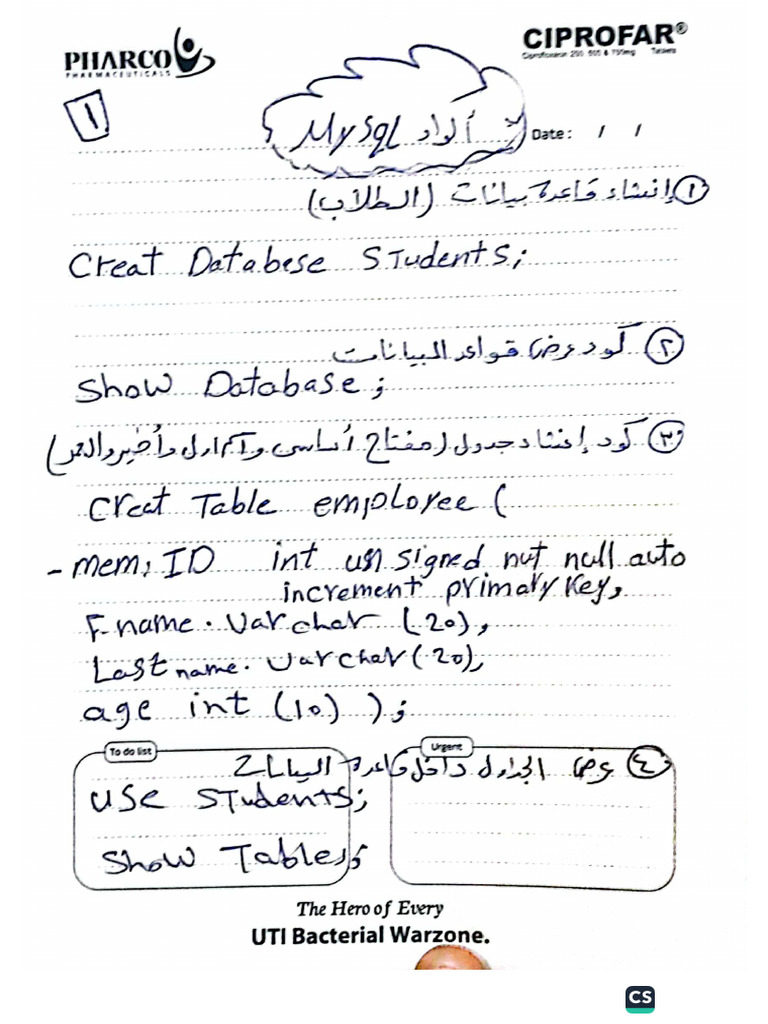 PHARCO
PHARMACEUTICALS
CIPROFAR®
Ciprofloxacin 250, 500 & 750mg Tablets
١
أكواد MySql
Date: / /
١ إنشاء قاعدة بيانات (الطلاب)
Creat Databese Students;
٢ كود عرض قواعد البيانات
Show Database;
٣ كود إنشاء جدول (مفتاح أساسى و اسم اول وأخير والعمر)
Creat Table employee (
- mem, ID int unsigned nut null auto
increment primary Key,
F-name. Varchar (20),
Last name. Varchar (20),
age int (10) );
To do list
Urgent
٤ عرض الجداول داخل قاعدة البيانات
use Students;
Show Tables;
The Hero of Every
UTI Bacterial Warzone.
CS